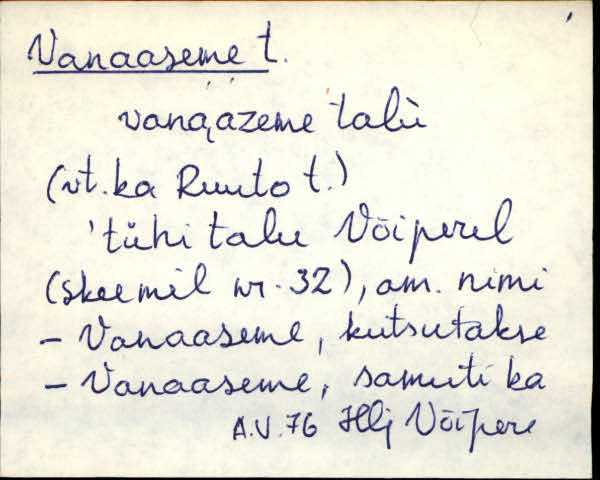 Vanaaseme t.
vanaazeme talù
(vt. ka Ruuto t.)
'tühi talu Võiperel
(skeemil nr. 32), am. nimi
- Vanaaseme, kutsutakse
- Vanaaseme, samuti ka
A.V. 76 Hlj Võipere